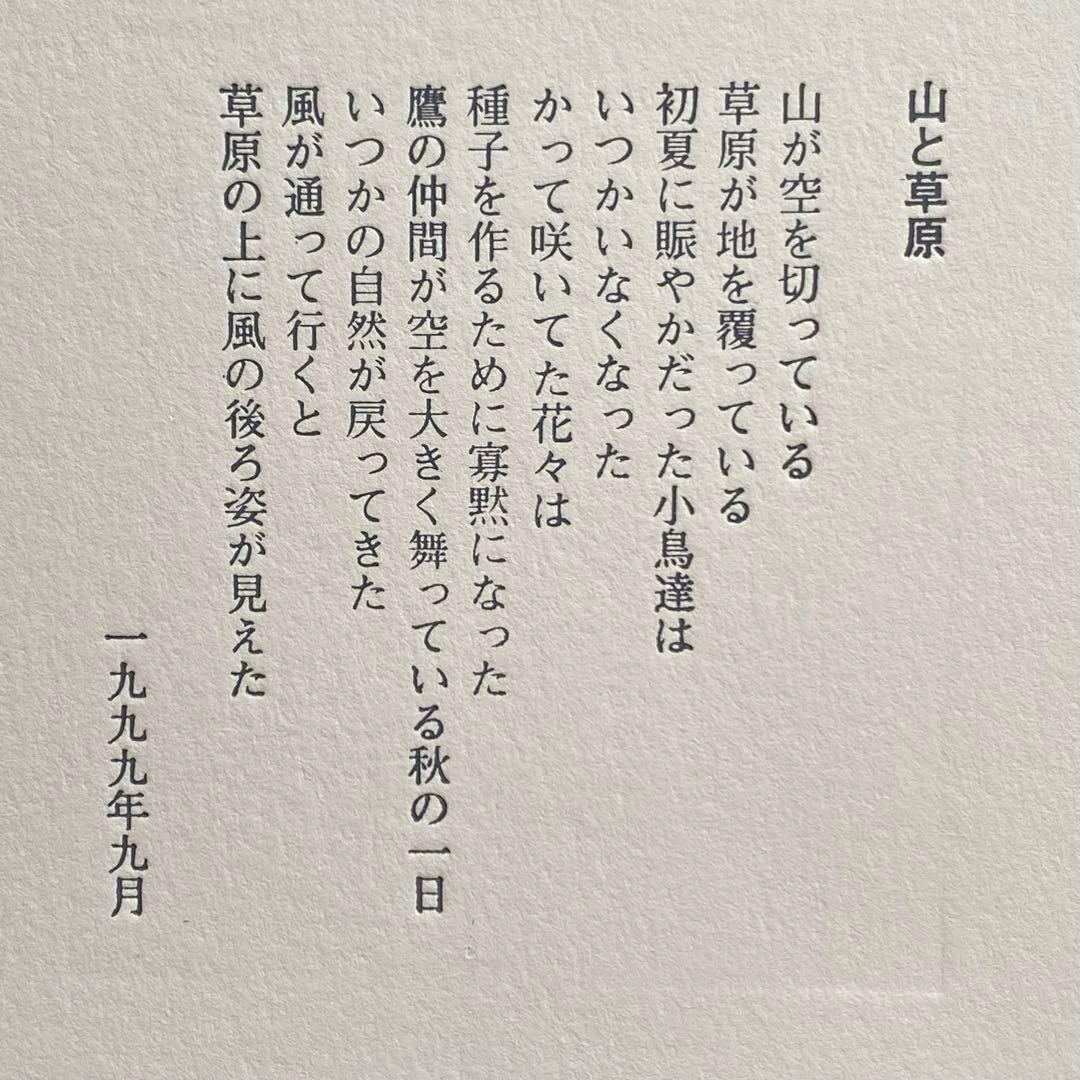 山と草原
山が空を切っている
草原が地を覆っている
初夏に賑やかだった小鳥達は
いつかいなくなった
かって咲いてた花々は
種子を作るために寡黙になった
鷹の仲間が空を大きく舞っている秋の一日
いつかの自然が戻ってきた
風が通って行くと
草原の上に風の後ろ姿が見えた
一九九九年九月